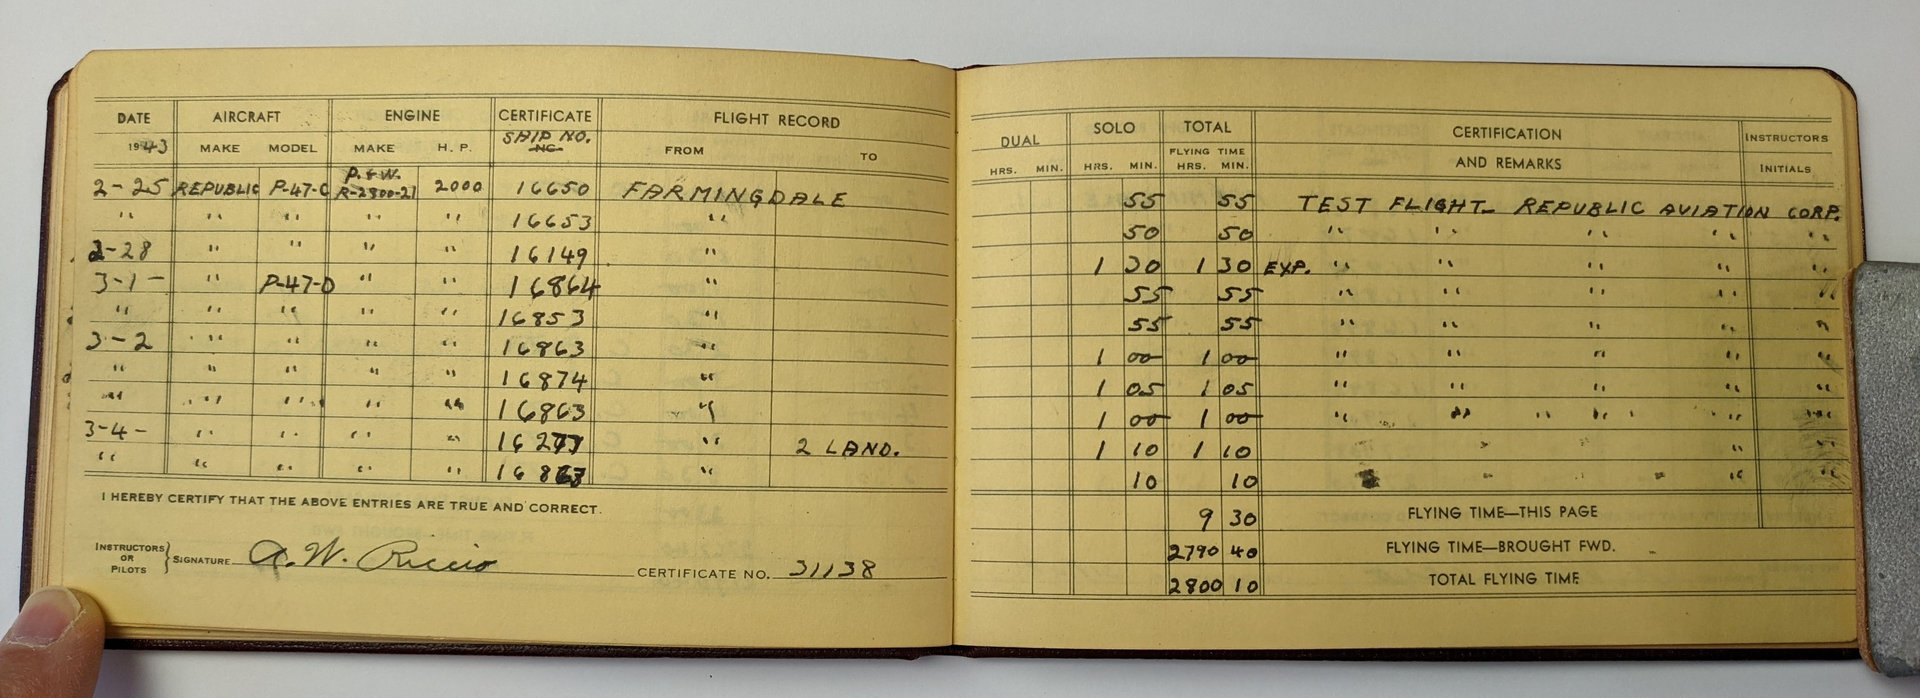 DATE AIRCRAFT ENGINE CERTIFICATE FLIGHT RECORD
1943 MAKE MODEL MAKE H. P. SHIP NO. NC FROM TO
2-25 REPUBLIC P-47-C P.&W. R-2800-21 2000 16650 FARMINGDALE
" " " " " 16653 "
2-28 " " " " 16149 "
3-1- " P-47-D " " 16864 "
" " " " " 16853 "
3-2 " " " " 16863 "
" " " " " 16874 "
" " " " " 16863 "
3-4- " " " " 16277 " 2 LAND.
" " " " " 16863 "
I HEREBY CERTIFY THAT THE ABOVE ENTRIES ARE TRUE AND CORRECT.
INSTRUCTORS OR PILOTS } SIGNATURE A. W. Riccio CERTIFICATE NO. 31138
DUAL SOLO TOTAL FLYING TIME CERTIFICATION AND REMARKS INSTRUCTORS INITIALS
HRS. MIN. HRS. MIN. HRS. MIN.
55 55 TEST FLIGHT- REPUBLIC AVIATION CORP.
50 50 " " " " "
1 30 1 30 EXP. " " " " "
55 55 " " " " "
55 55 " " " " "
1 00 1 00 " " " " "
1 05 1 05 " " " " "
1 00 1 00 " " " " "
1 10 1 10 " "
10 10 " "
9 30 FLYING TIME—THIS PAGE
2790 40 FLYING TIME—BROUGHT FWD.
2800 10 TOTAL FLYING TIME